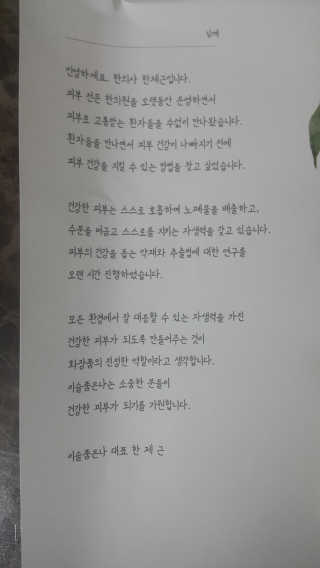 님께
안녕하세요. 한의사 한제근입니다.
피부 전문 한의원을 오랫동안 운영하면서
피부로 고통받는 환자들을 수없이 만나왔습니다.
환자들을 만나면서 피부 건강이 나빠지기 전에
피부 건강을 지킬 수 있는 방법을 찾고 싶었습니다.
건강한 피부는 스스로 호흡하며 노폐물을 배출하고,
수분을 머금고 스스로를 지키는 자생력을 갖고 있습니다.
피부의 건강을 돕는 약재와 추출법에 대한 연구를
오랜 시간 진행하였습니다.
모든 환경에서 잘 대응할 수 있는 자생력을 가진
건강한 피부가 되도록 만들어주는 것이
화장품의 진정한 역할이라고 생각합니다.
이슬품은나는 소중한 분들이
건강한 피부가 되기를 기원합니다.
이슬품은나 대표 한 제 근